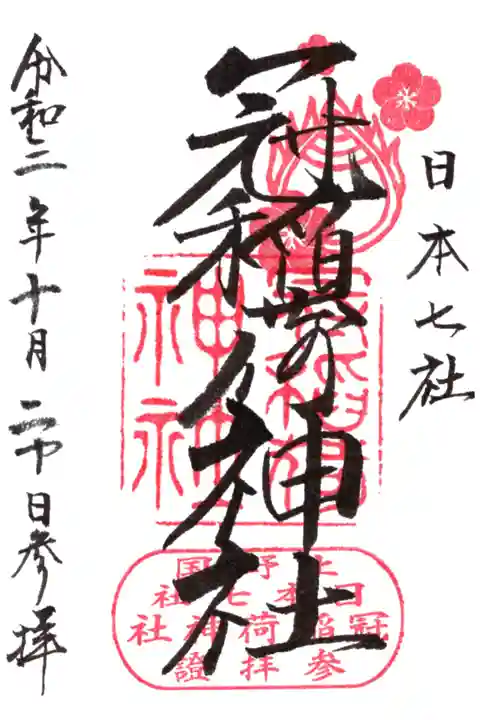 日本七社
冠稲荷神社
令和二年十月二十日参拝
上野国
日本七社
冠稲荷神社
参拝證